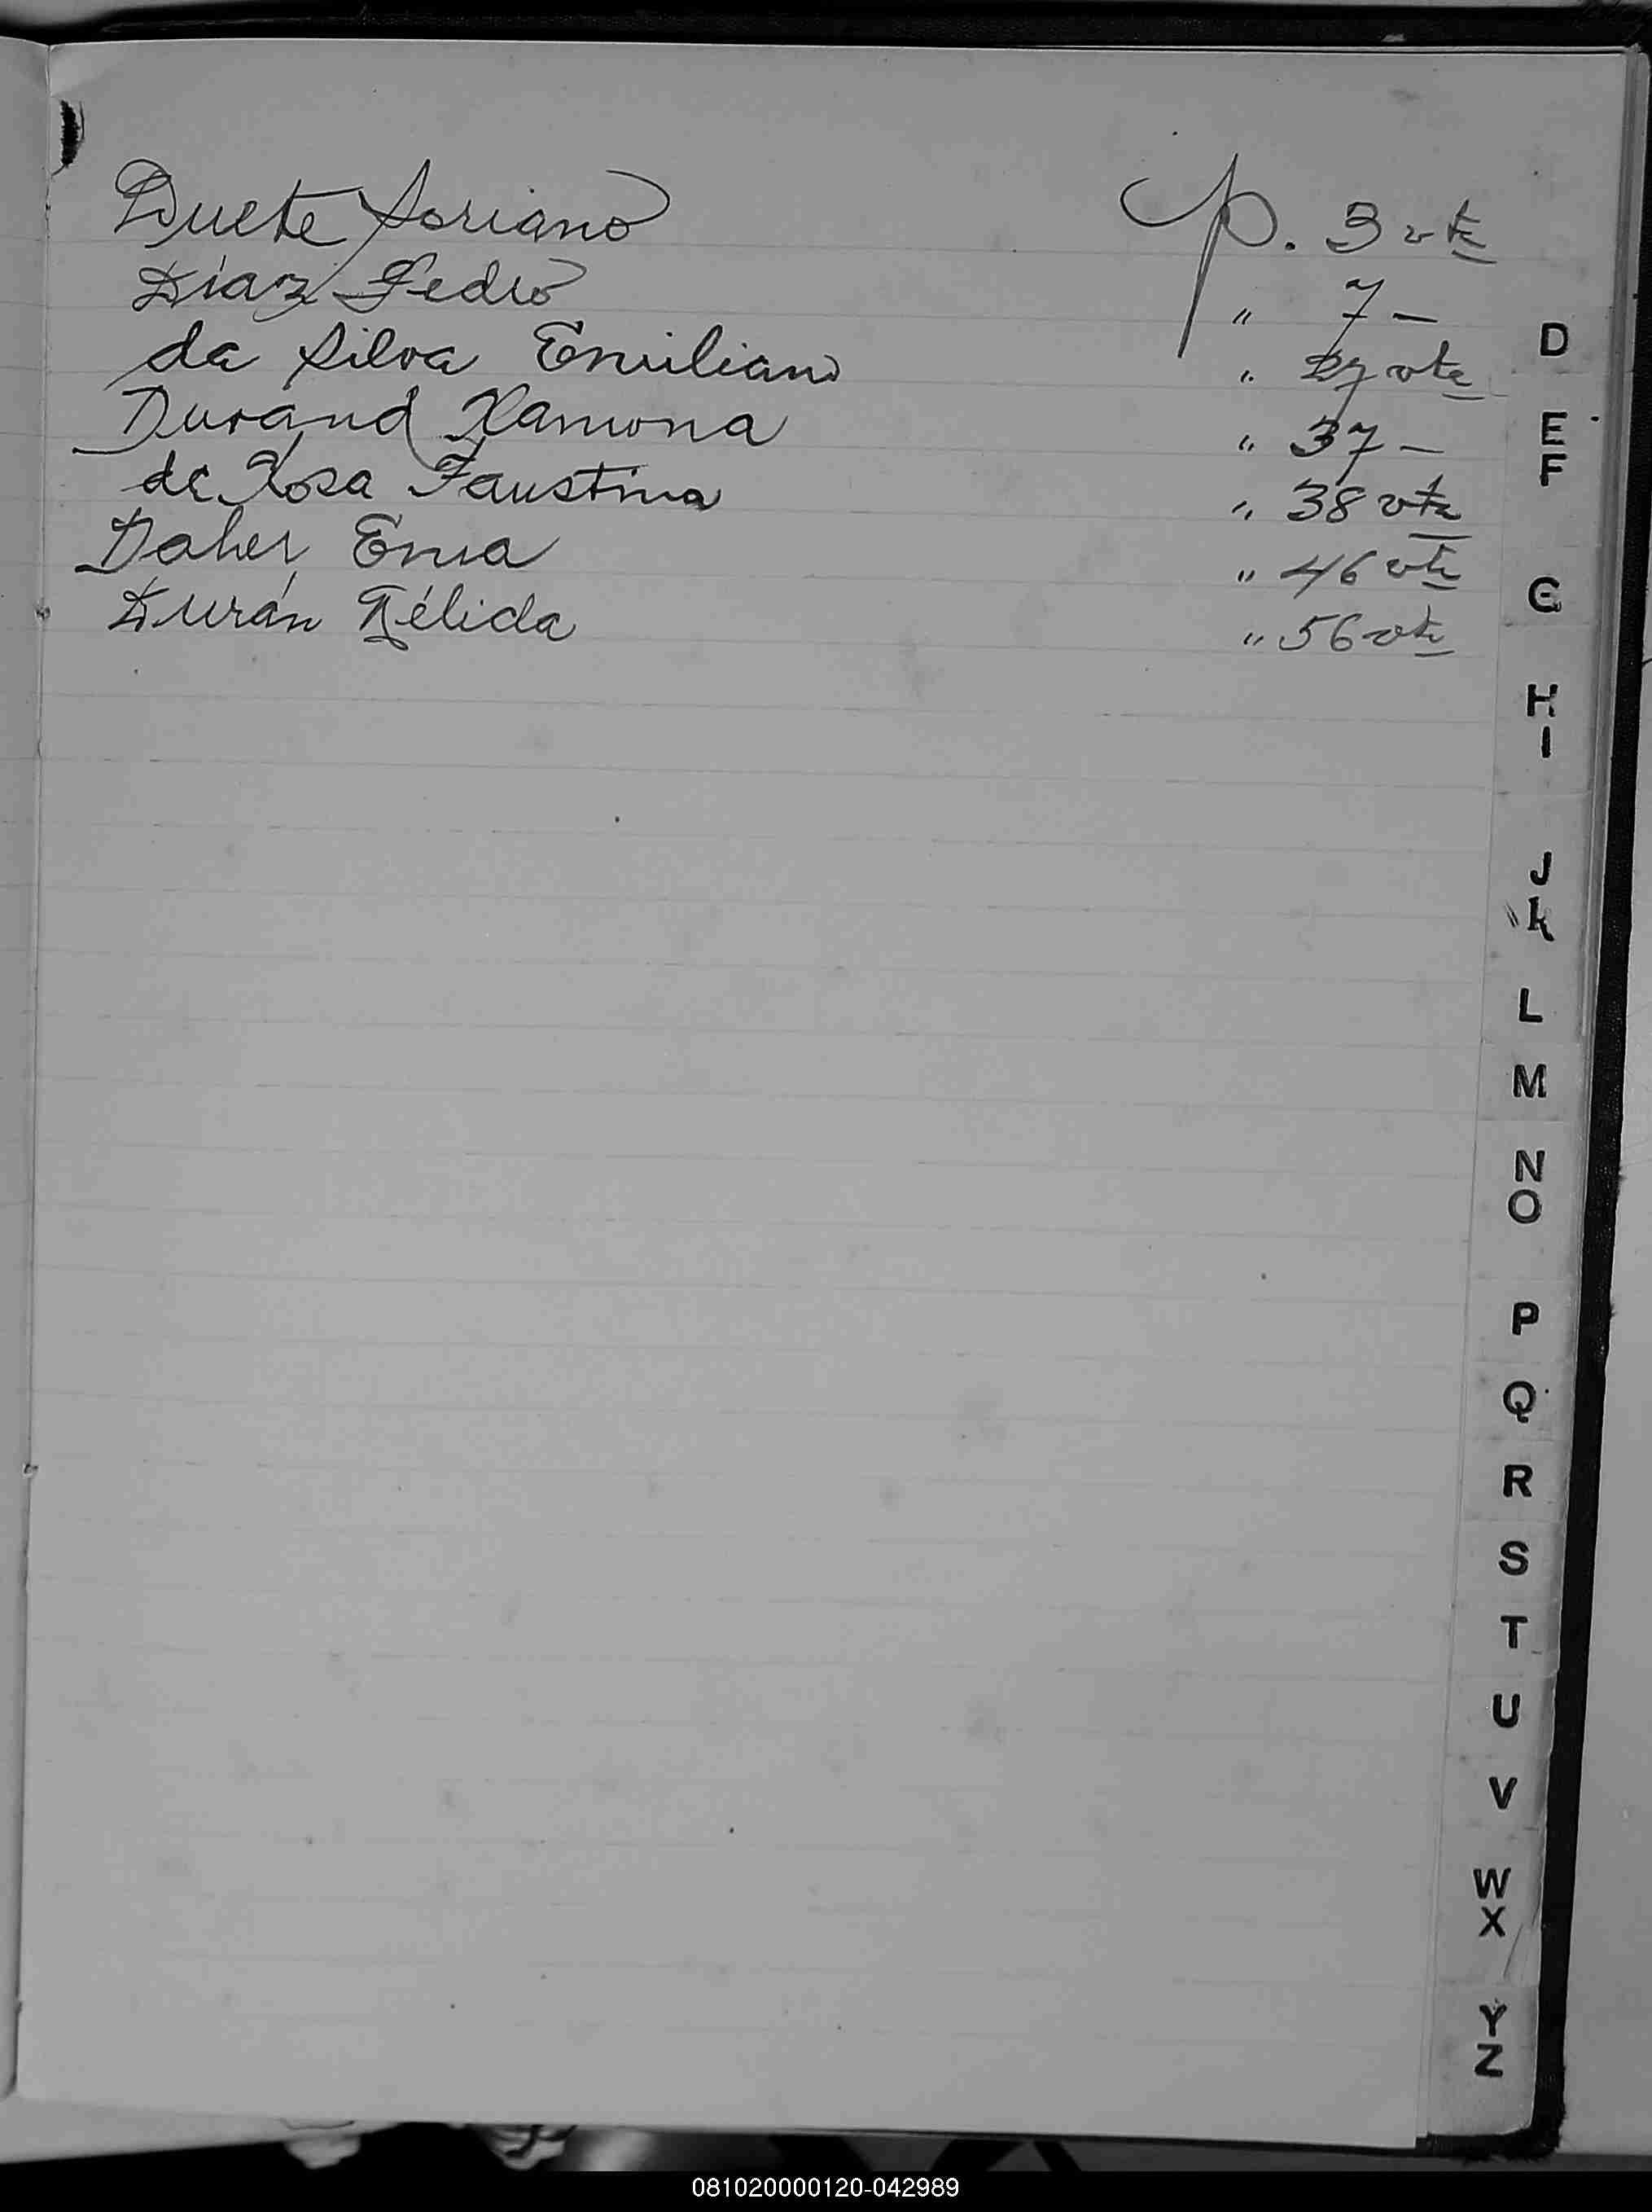 Duete Soriano p. 3 vta
Díaz Pedro " 7 —
da Silva Emiliano " 27 vta
Durand Ramona " 37 —
de Rosa Faustina " 38 vta
Daher, Ema " 46 vta
Durán Nélida " 56 vta
D
E
F
G
H
I
J
K
L
M
N
O
P
Q
R
S
T
U
V
W
X
Y
Z
081020000120-042989